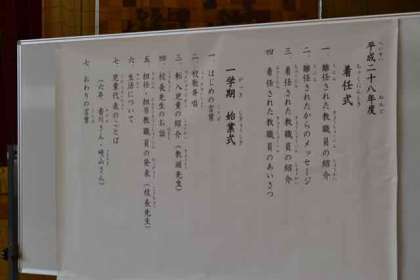 平成二十八年度
着任式
一、離任された教職員の紹介
二、離任されたからのメッセージ
三、着任された教職員の紹介
四、着任された教職員のあいさつ
一学期 始業式
一、はじめの言葉
二、校歌斉唱
三、転入児童の紹介(教頭先生)
四、校長先生のお話
五、担任・担当教職員の発表(校長先生)
六、生活について
七、児童代表のことば
七、おわりの言葉